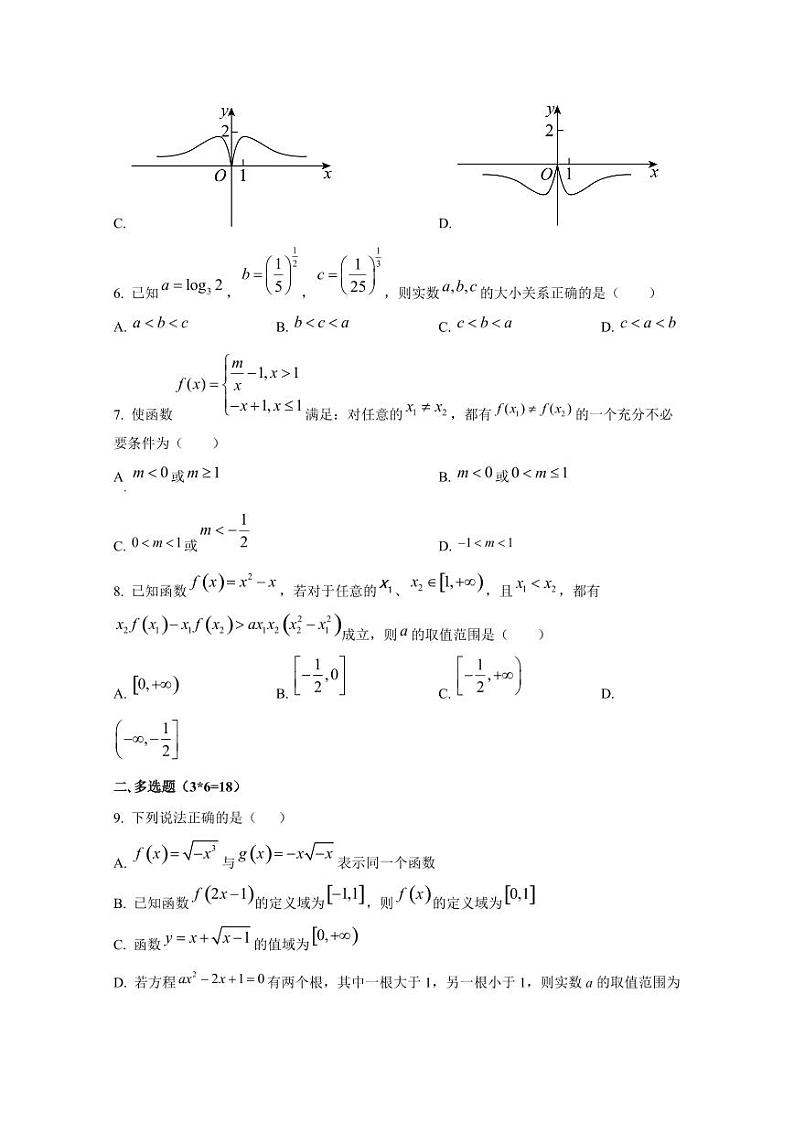 y y
2 2
O 1 x O 1 x
C. D.
6. 已知 a = log₃ 2 , b = (1/5)^(1/2) , c = (1/25)^(1/3) ,则实数 a,b,c 的大小关系正确的是( )
A. a < b < c B. b < c < a C. c < b < a D. c < a < b
7. 使函数 f(x) = { m/x − 1, x > 1; −x + 1, x ≤ 1 满足:对任意的 x₁ ≠ x₂ ,都有 f(x₁) ≠ f(x₂) 的一个充分不必
要条件为( )
A. m < 0 或 m ≥ 1 B. m < 0 或 0 < m ≤ 1
C. 0 < m < 1 或 m < −1/2 D. −1 < m < 1
8. 已知函数 f(x) = x² − x ,若对于任意的 x₁、x₂ ∈ [1,+∞) ,且 x₁ < x₂ ,都有
x₂f(x₁) − x₁f(x₂) > ax₁x₂(x₂² − x₁²) 成立,则 a 的取值范围是( )
A. [0,+∞) B. [−1/2, 0] C. [−1/2, +∞) D.
(−∞, −1/2]
二、多选题(3*6=18)
9. 下列说法正确的是( )
A. f(x) = √(−x³) 与 g(x) = −x√(−x) 表示同一个函数
B. 已知函数 f(2x−1) 的定义域为 [−1,1],则 f(x) 的定义域为 [0,1]
C. 函数 y = x + √(x−1) 的值域为 [0,+∞)
D. 若方程 ax² − 2x + 1 = 0 有两个根,其中一根大于 1,另一根小于 1,则实数 a 的取值范围为